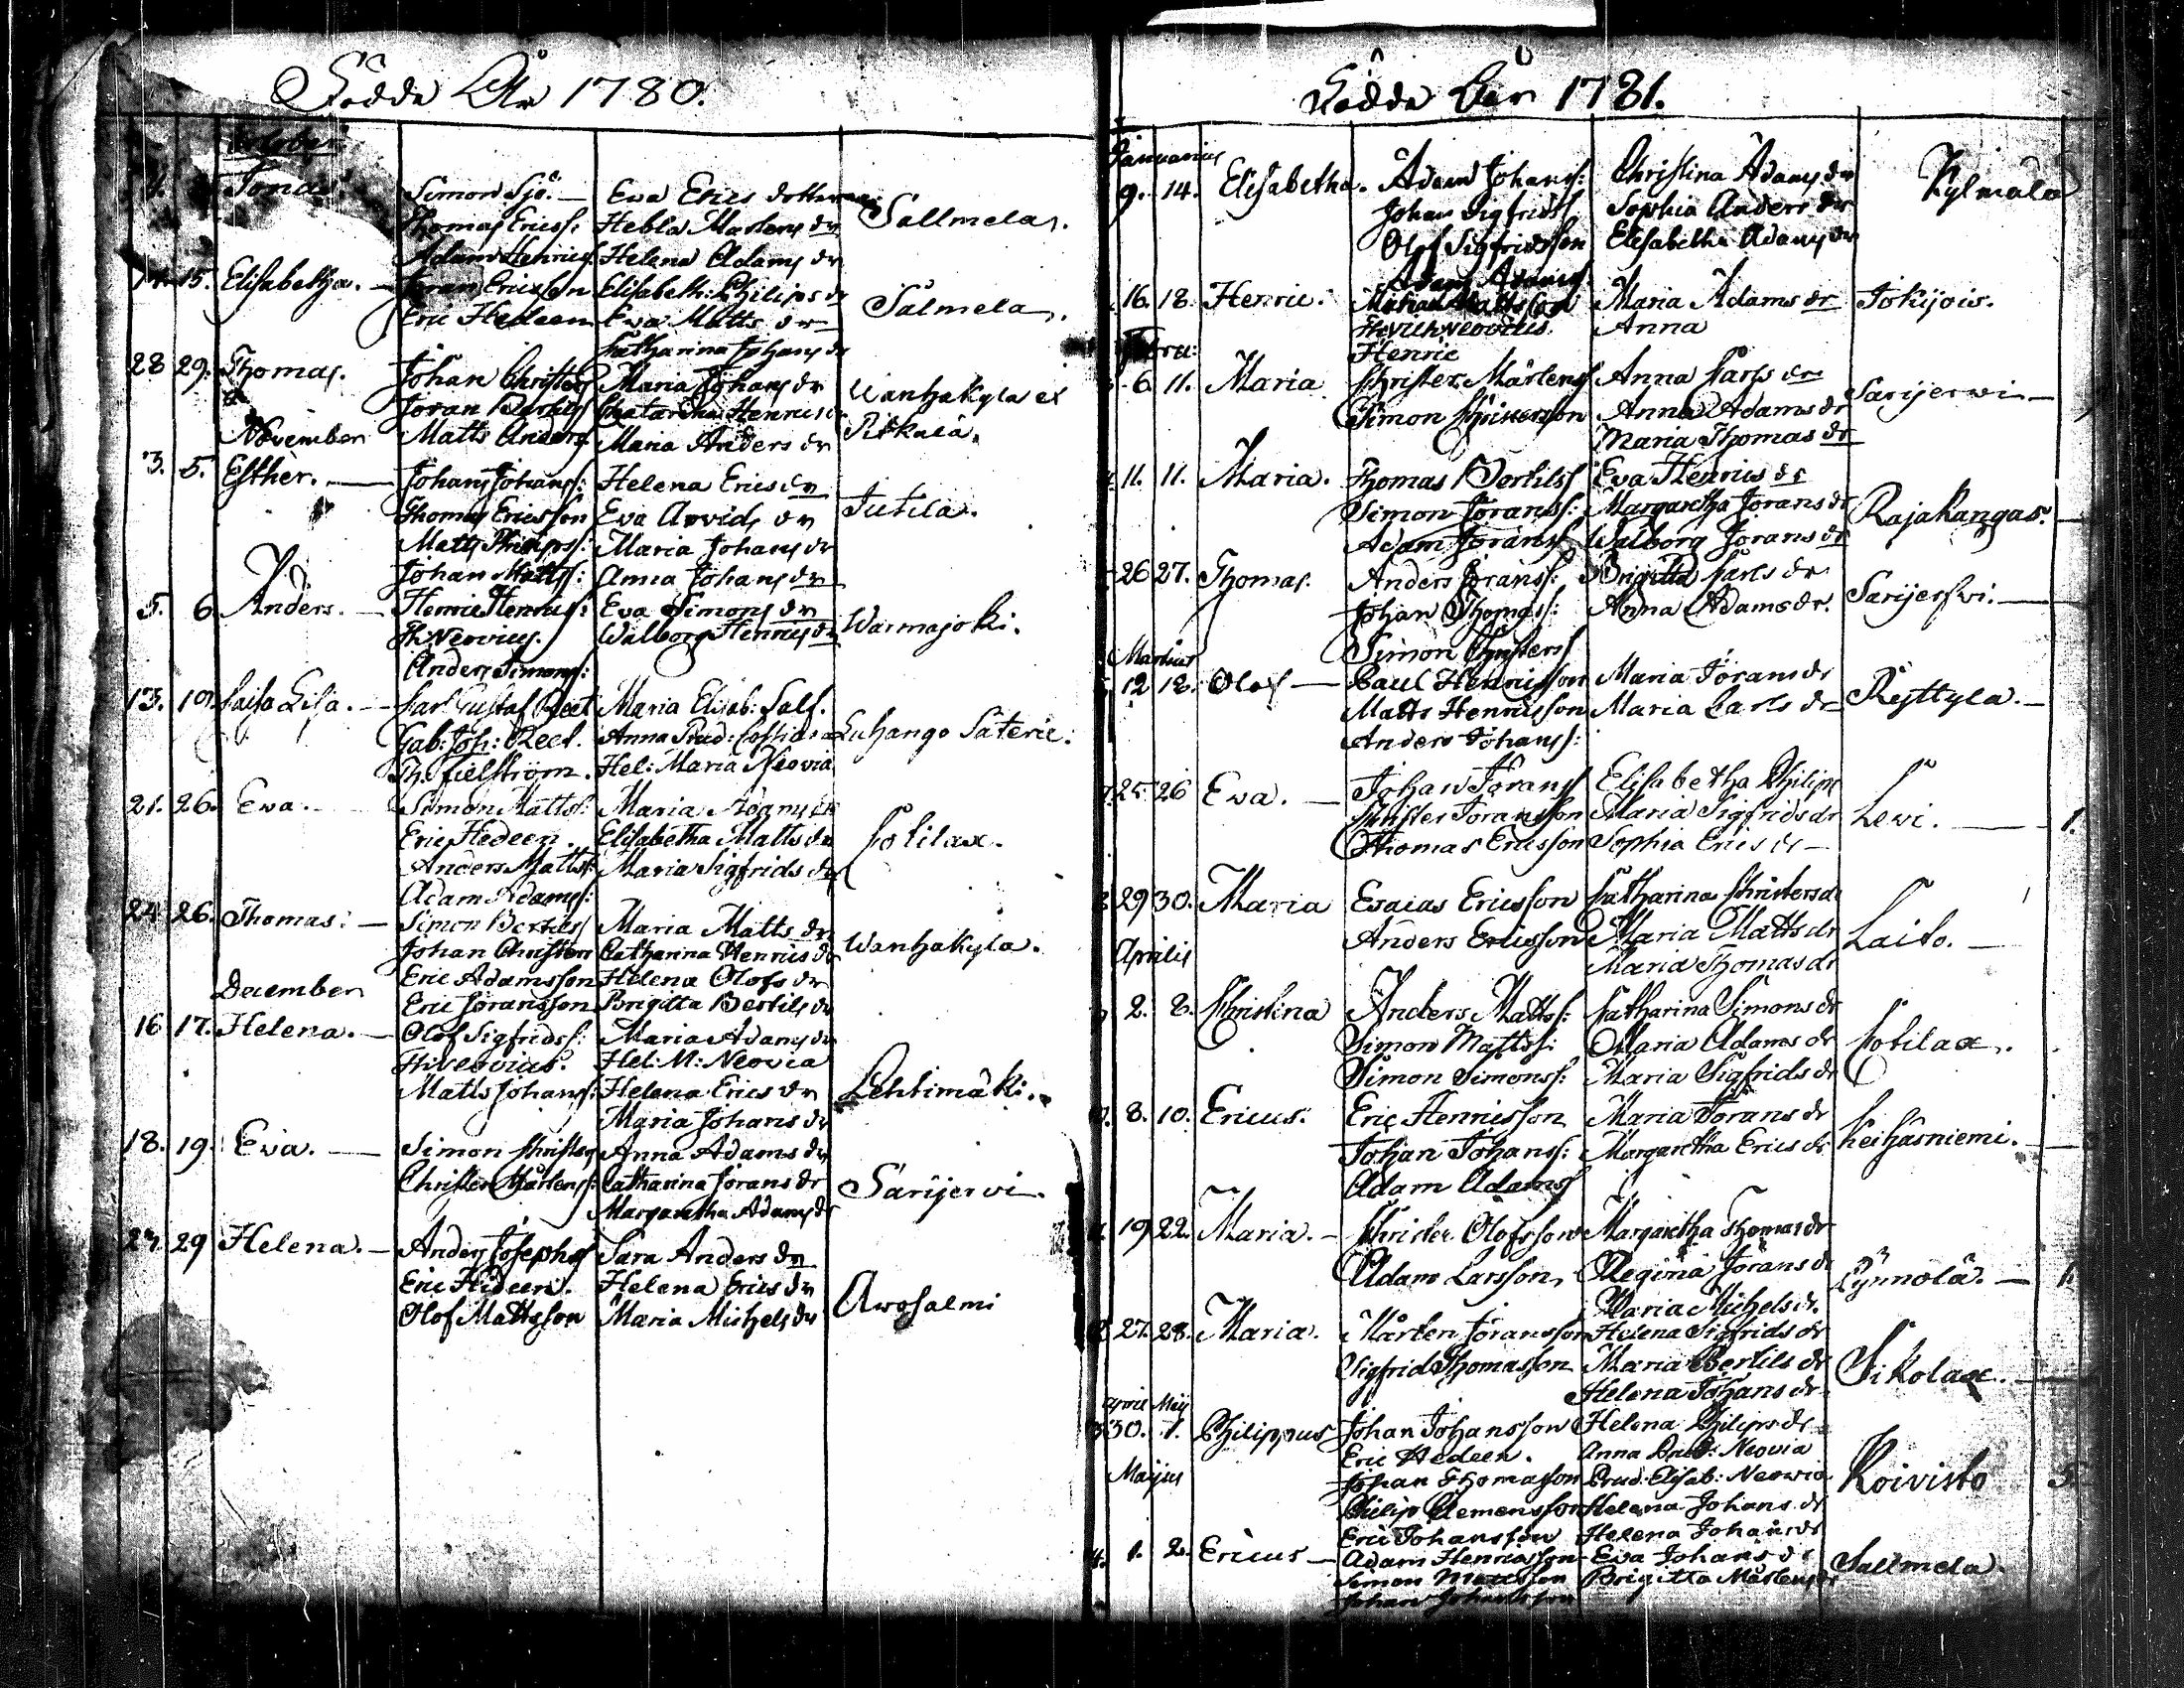 Födde År 1780.
October
4. Jonas. Simon Sjö. — Eva Erics dotter Sallmela.
Thomas Ericss: Hebla Mårtens dr
Adam Henrics: Helena Adams dr
15. Elisabetha. — Jöran Ericsson Elisabeth: Philips dr Salmela.
Eric Hedeen Eva Matts dr
Catharina Johans dr
28 29. Thomas. Johan Christers Maria Johans dr Wanhakyla et
Jöran Bertilss Chatarina Henrics dr Pitkälä.
Matts Anderss Maria Anders dr
November
3. 5. Esther. — Johan Johanss: Helena Erics dr Jutila.
Thomas Ericsson Eva Arvids dr
Matts Philipss: Maria Johans dr
Johan Mattss: Anna Johans dr
5. 6 Anders. — Henric Henrics: Eva Simons dr Warmajoki.
Th Neovius. Walborg Henrics dr
Anders Simons:
13. 19. Caisa Lisa. — Carl Gustaf Reet Maria Elisab: Salf.
Gab: Joh: Reet. Anna Prud: Costiana Luhango Säterie.
Th. fielström. Hel: Maria Neovia
21. 26. Eva. — Simon Mattss: Maria Adams dr
Eric Hedeen. Elisabetha Matts dr Cotilax.
Anders Mattss: Maria Sigfrids dr
Adam Adamss:
24. 26. Thomas. — Simon Bertilss Maria Matts dr
Johan Christers Catharina Henrics dr Wanhakyla.
Eric Adamsson Helena Olofs dr
December
Eric Jöransson Brigitta Bertils dr
16 17. Helena. — Olof Sigfridss: Maria Adams dr
Th Neovius. Hel: M: Neovia
Matts Johanss: Helena Erics dr Lehtimäki.
Maria Johans dr
18. 19. Eva. — Simon Christers Anna Adams dr
Christer Mårtens: Catharina Jörans dr Sarijervi.
Margaretha Adams dr
29 Helena. — Anders Josephss Sara Anders dr
Eric Hedeen. Helena Erics dr
Olof Mattsson Maria Michels dr Arvosalmi
Födde Åhr 1781.
Januarius
9. 14. Elisabetha. Adam Johanss: Christina Adams dr Kylmälä
Johan Sigfridss Sophia Anders dr
Olof Sigfridsson Elisabetha Adams dr
Adam Adamss
16. 18. Henric. Mattsson Maria Adams dr Jokijois.
Neovius. Anna
Febru:
Henric
6. 11. Maria Christer Mårtens Anna Lars dr Sarijerwi —
Simon Christersson Anna Adams dr
Maria Thomas dr
11. 11. Maria. Thomas Bertilss Eva Henrics dr
Simon Jöranss: Margaretha Jörans dr Rajakangas.
Adam Jöranss Walborg Jörans dr
26 27. Thomas. Anders Jöranss: Brigitta Carls dr
Johan Thomass: Anna Adams dr. Sarijerfvi. —
Simon Christers
Martius
12 18. Olof — Paul Henricsson Maria Jörans dr
Matts Henricsson Maria Carls dr Ryttyla. —
Anders Johanss:
25 26 Eva. — Johan Jöranss Elisabetha Philips
Christer Joransson Maria Sigfrids dr Lewi. — 1.
Thomas Ericsson Sophia Erics dr
29 30. Maria Esaias Ericsson Catharina Christers dr
Anders Ericsson Maria Matts dr Laito. —
Maria Thomas dr
Aprilis
2. 8. Christina Anders Mattss: Catharina Simons dr
Simon Mattss: Maria Adams dr Cotilax.
Simon Simonss: Maria Sigfrids dr
8. 10. Ericus. Eric Henricsson Maria Jörans dr
Johan Johanss: Margaretha Erics dr Keihäsniemi. —
Adam Adamss
19 22. Maria. — Christer Olofsson Margaretha Thomas dr
Adam Larsson, Regina Jörans dr Lynnölä. — 1.
Maria Michels dr.
27. 28. Maria. Mårten Jöransson Helena Sigfrids dr
Sigfrid Thomasson Maria Bertils dr Sikolax. —
Helena Johans dr
April Maij
30. 1. Philippus Johan Johansson Helena Philips dr
Eric Hedeen. Anna Prud: Neovia
Maijus
Johan Thomasson Prud: Elisab: Neovia Koivisto 5.
Philip Clemensson Helena Johans dr
Eric Johansson Helena Johans dr
1. 2. Ericus — Adam Henricsson Eva Johans dr Sallmela.
Simon Mattsson Brigitta Mårtens dr
Johan Johansson